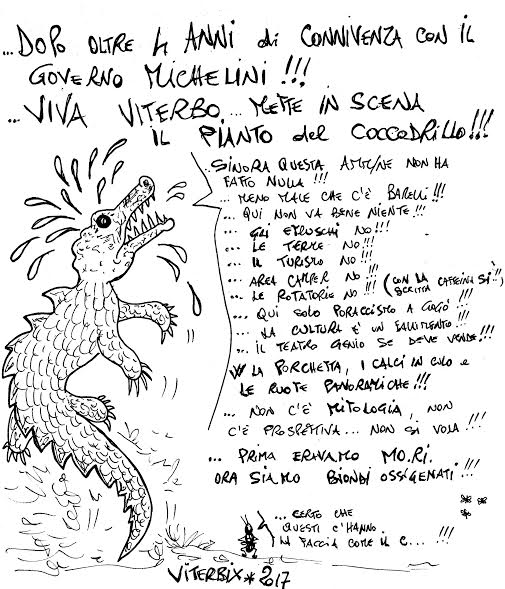 ...DOPO OLTRE 4 ANNI di CONNIVENZA CON IL
GOVERNO MICHELINI!!!
...VIVA VITERBO... METTE IN SCENA
IL PIANTO del COCCODRILLO!!!
...SINORA QUESTA AMM/NE NON HA
FATTO NULLA!!!
...MENO MALE CHE C'È BARELLI!!!
...QUI NON VA BENE NIENTE!!!
...GLI ETRUSCHI NO!!!
...LE TERME NO!!!
...IL TURISMO NO!!!
...AREA CAMPER NO!!!
...LE ROTATORIE NO!!! (CON LA CAFFEINA SÌ!!,
SCRITTA
...QUI SOLO PORACCISMO A GOGÒ!!!
...LA CULTURA È UN FALLIMENTO!!!
...IL TEATRO GENIO SE DEVE VENDE!!!
W LA PORCHETTA, I CALCI IN CULO e
LE RUOTE PANORAMICHE!!!
...NON C'È MITOLOGIA, NON
C'È PROSPETTIVA... NON SI VOLA!!!
...PRIMA ERAVAMO MO.RI.
ORA SIAMO BIONDI OSSIGENATI!!!
...CERTO CHE
QUESTI C'HANNO
LA FACCIA COME IL C... !!!
VITERBIX* 2017